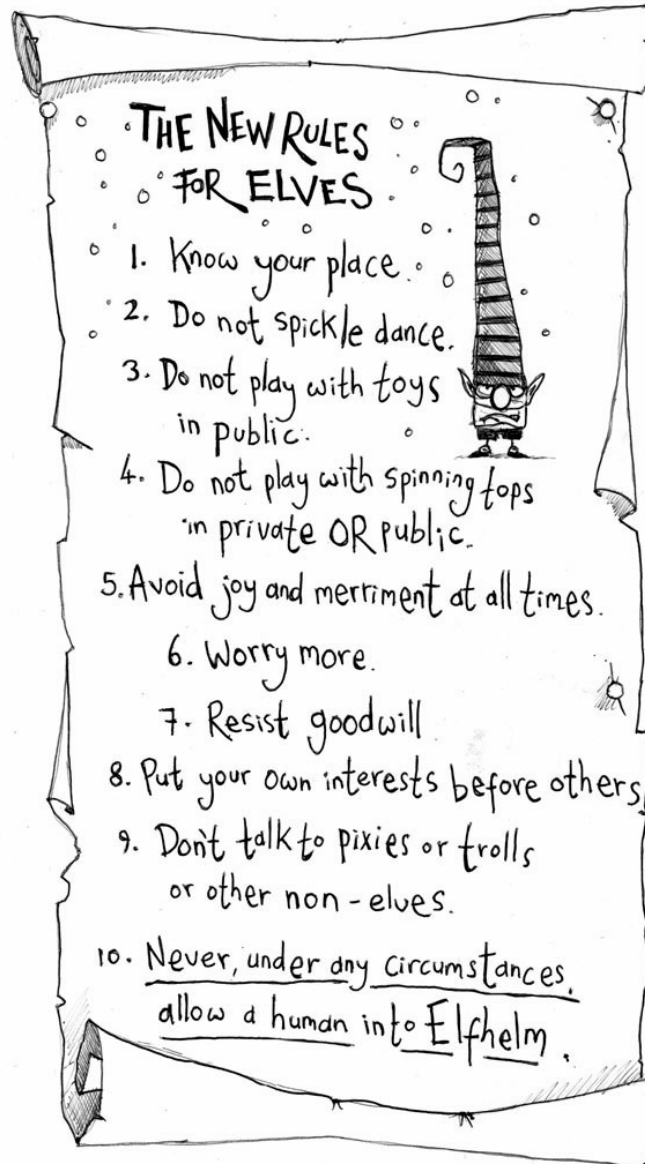 THE NEW RULES
FOR ELVES
1. Know your place.
2. Do not spickle dance.
3. Do not play with toys
in public.
4. Do not play with spinning tops
in private OR public.
5. Avoid joy and merriment at all times.
6. Worry more.
7. Resist goodwill
8. Put your own interests before others
9. Don't talk to pixies or trolls
or other non-elves.
10. Never, under any circumstances,
allow a human into Elfhelm.